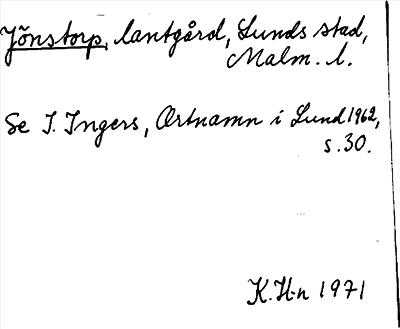 Jönstorp, lantgård, Lunds stad,
Malm. l.
Se I. Ingers, Ortnamn i Lund 1962,
s. 30.
K. H-n 1971